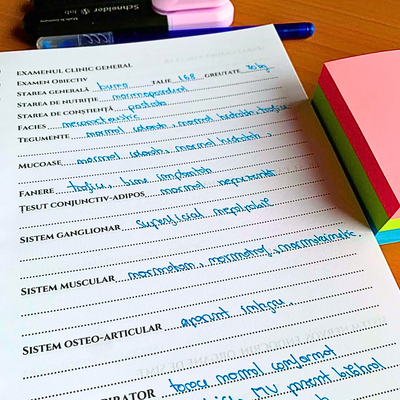 Schneider
Job
EXAMENUL CLINIC GENERAL
EXAMEN OBIECTIV
STAREA GENERALĂ bună TALIE 168 GREUTATE 70 kg
STAREA DE NUTRIȚIE normoponderal
STAREA DE CONȘTIENȚĂ păstrată
FACIES necaracteristic
TEGUMENTE normal colorate, normal hidratate, trofice
MUCOASE normal colorate, normal hidratate,
FANERE trofice, bine implantate
ȚESUT CONJUNCTIV-ADIPOS normal reprezentat
SISTEM GANGLIONAR superficial nepalpabil
SISTEM MUSCULAR normoton, normotrof, normokinetic.
SISTEM OSTEO-ARTICULAR aparent integru.
torace normal conformat
MV prezent bilateral